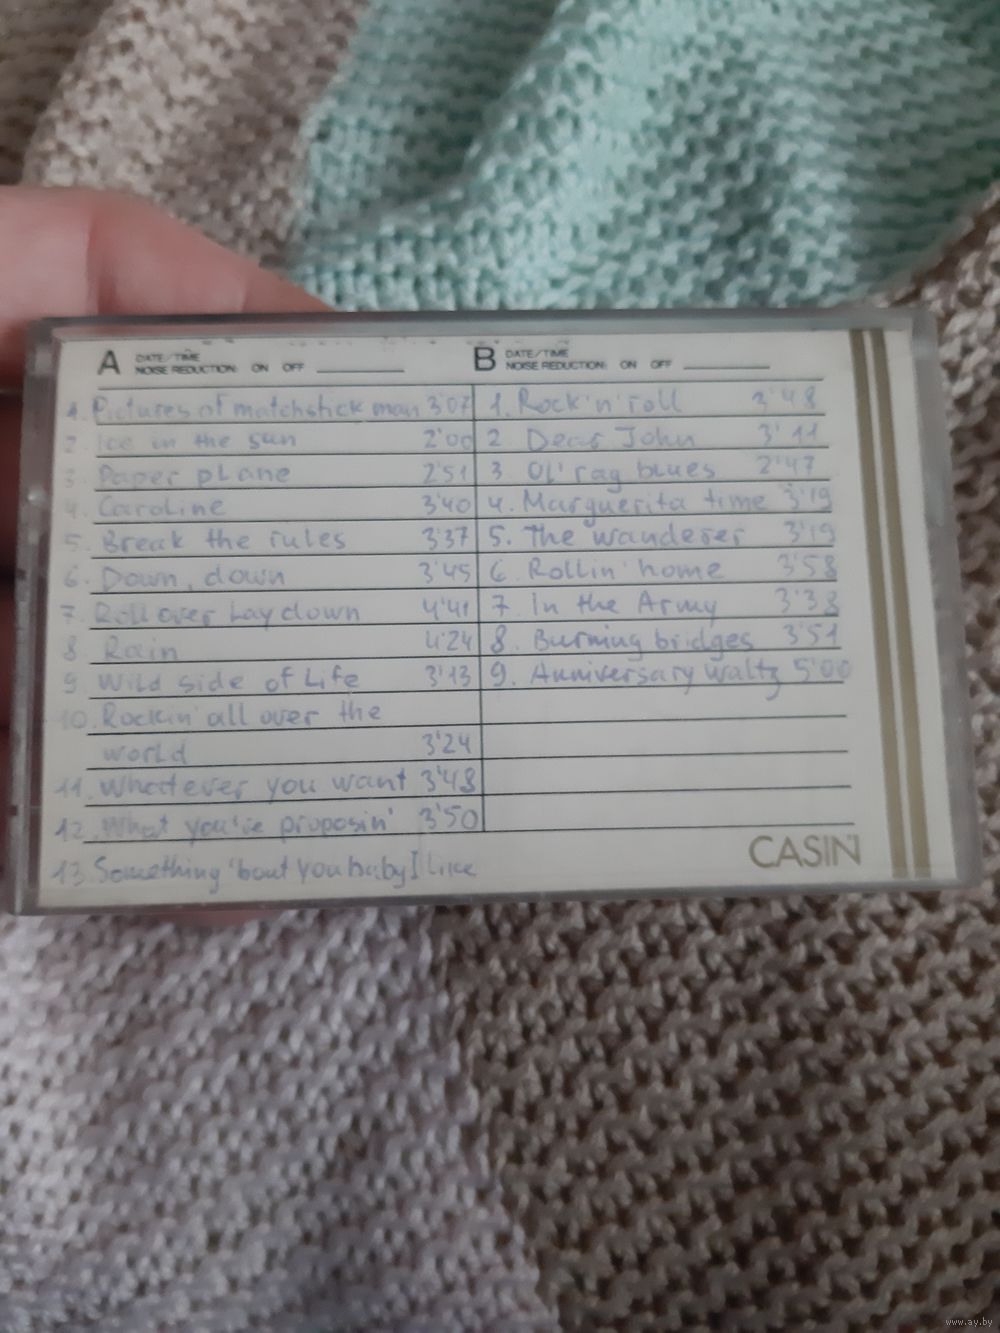 A DATE/TIME
NOISE REDUCTION: ON OFF
1. Pictures of matchstick man 3'07
2. Ice in the sun 2'00
3. Paper plane 2'51
4. Caroline 3'40
5. Break the rules 3'37
6. Down, down 3'45
7. Roll over Lay down 4'41
8. Rain 4'24
9. Wild side of Life 3'13
10. Rockin' all over the
world 3'24
11. Whatever you want 3'48
12. What you're proposin' 3'50
13. Something 'bout You baby I like
B DATE/TIME
NOISE REDUCTION: ON OFF
1. Rock'n'roll 3'48
2 Dear John 3'11
3. Ol' rag blues 2'47
4. Marguerita time 3'19
5. The wanderer 3'19
6. Rollin' home 3'58
7. In the Army 3'38
8. Burning bridges 3'51
9. Anniversary waltz 5'00
CASIN
www.ay.by